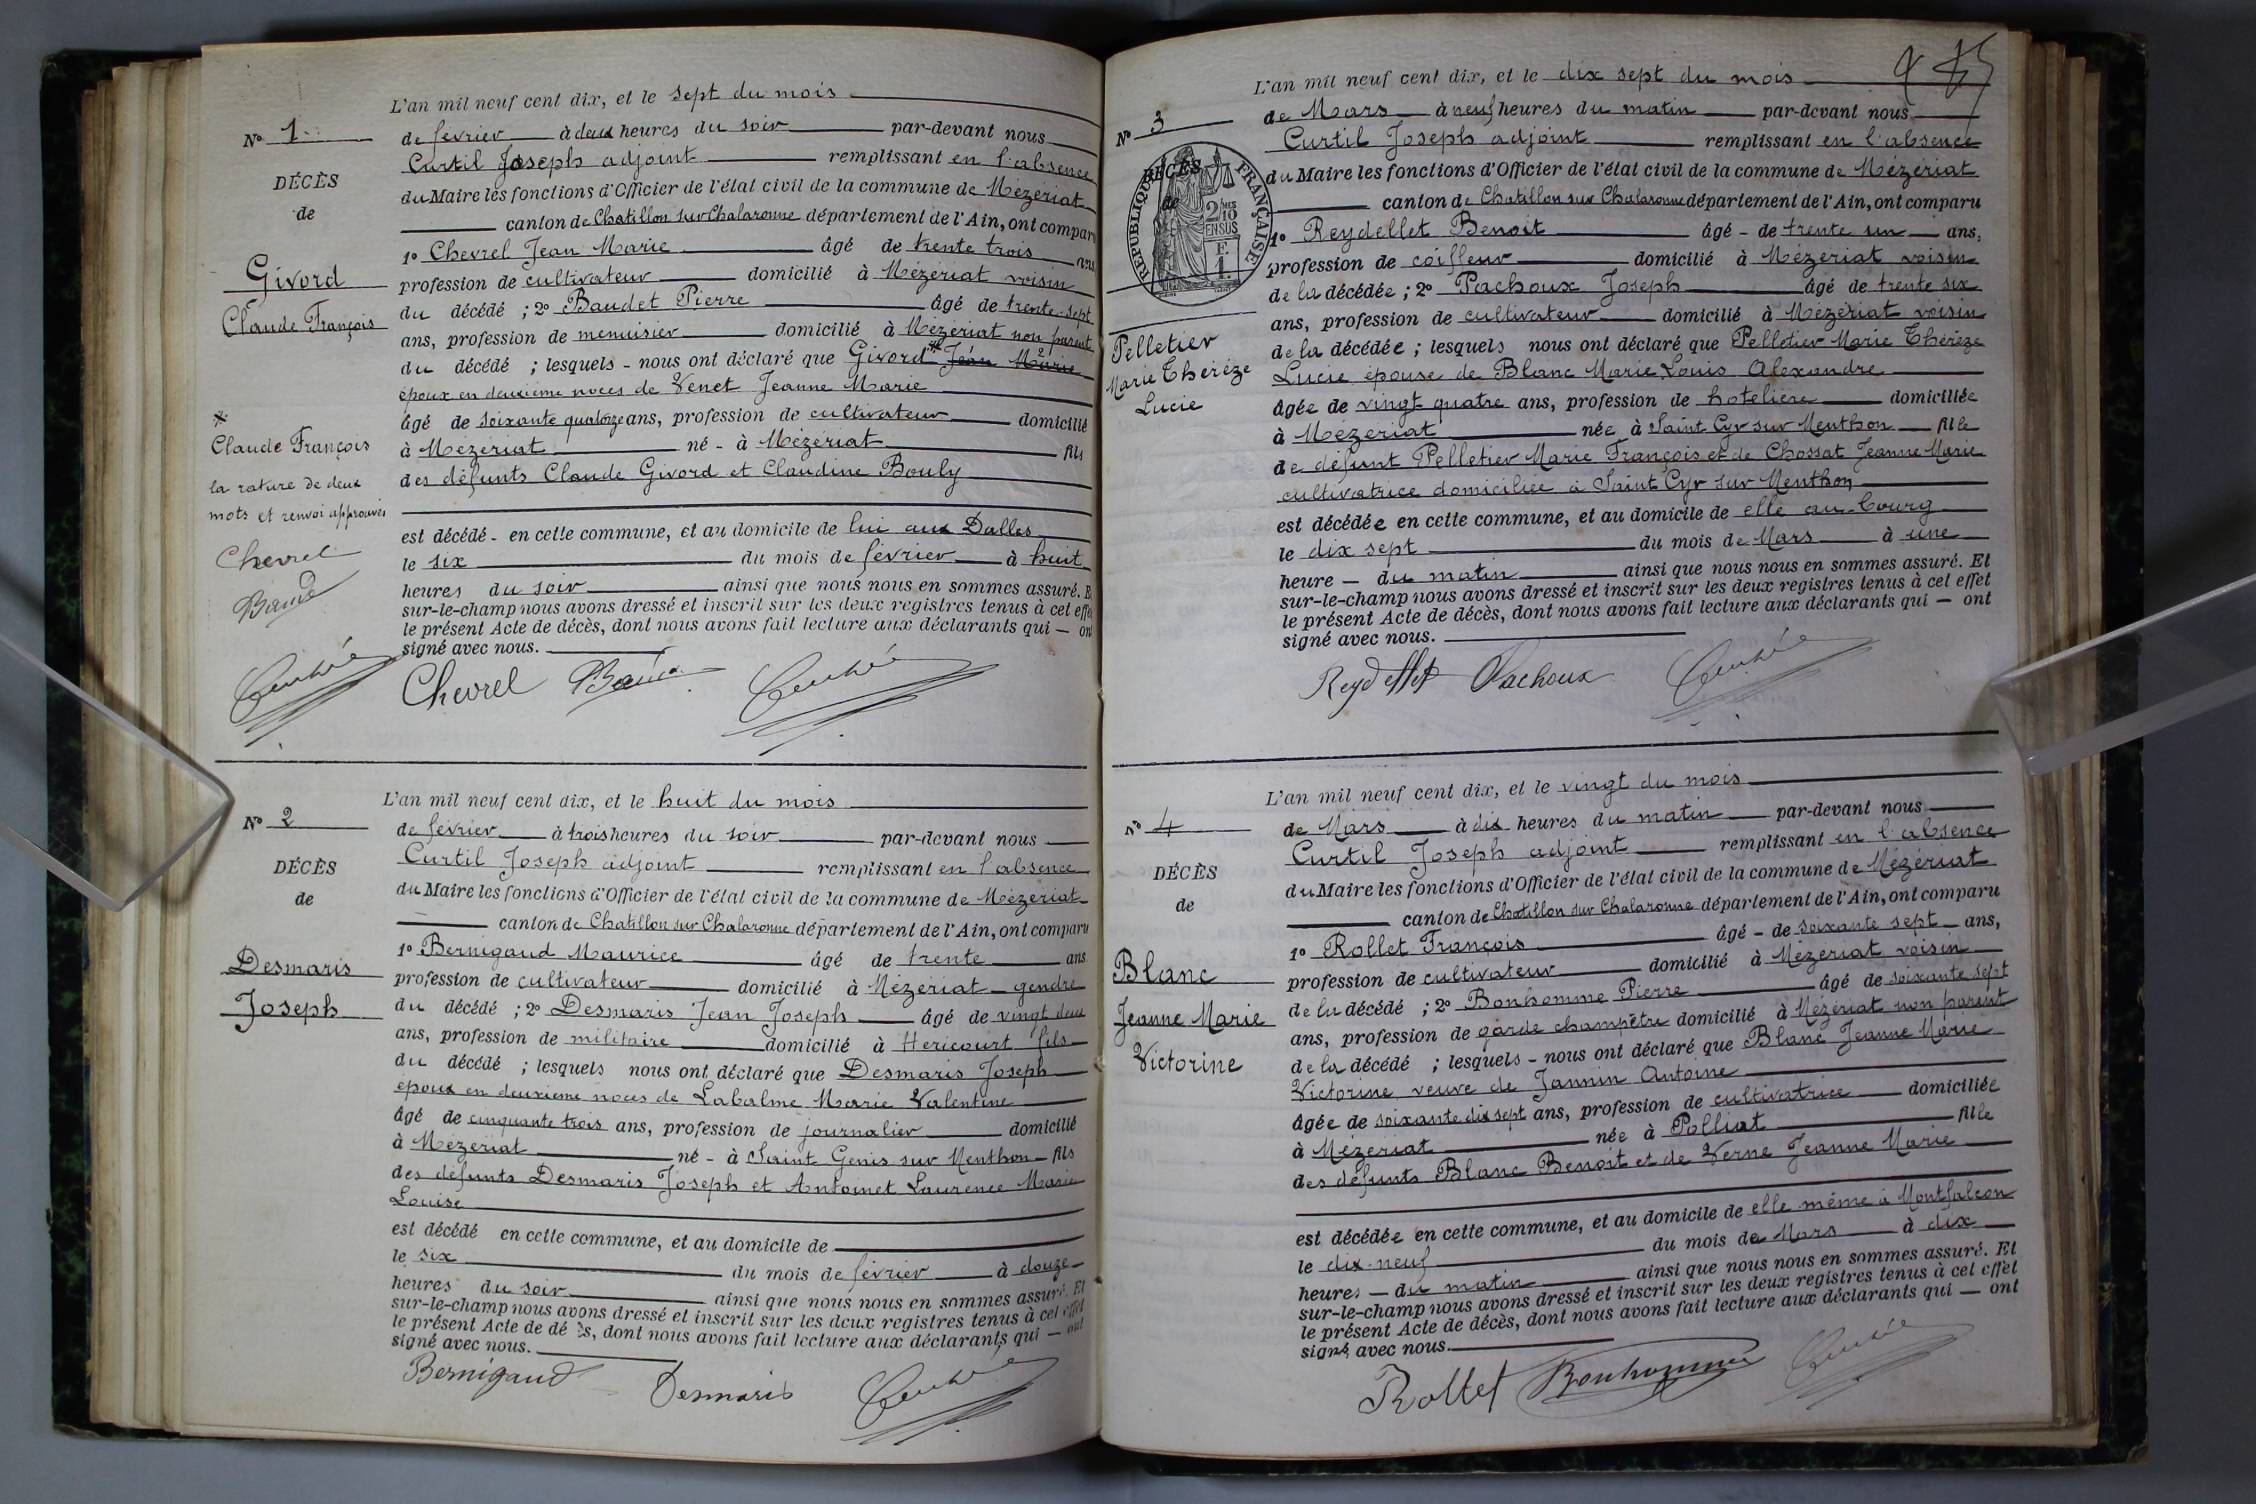 L'an mil neuf cent dix, et le sept du mois
N° 1
de février à deux heures du soir par-devant nous
Curtil Joseph adjoint remplissant en l'absence
DÉCÈS
du Maire les fonctions d'Officier de l'état civil de la commune de Mézériat
de
canton de Chatillon sur Chalaronne département de l'Ain, ont comparu
1° Chevrel Jean Marie âgé de trente trois ans
Givord
profession de cultivateur domicilié à Mézériat voisin
Claude François
du décédé ; 2° Baudet Pierre âgé de trente-sept
ans, profession de menuisier domicilié à Mézériat non parent
du décédé ; lesquels - nous ont déclaré que Givord * Jean Marie
époux en deuxième noces de Venet Jeanne Marie
*
Claude François
la rature de deux
mots et renvoi approuvés
Chevrel
âgé de soixante quatorze ans, profession de cultivateur domicilié
à Mézériat né - à Mézériat fils
des défunts Claude Givord et Claudine Bouly
est décédé - en cette commune, et au domicile de lui aux Dalles
le six du mois de février à huit
heures du soir ainsi que nous nous en sommes assuré. Et
sur-le-champ nous avons dressé et inscrit sur les deux registres tenus à cet effet
le présent Acte de décès, dont nous avons fait lecture aux déclarants qui — ont
signé avec nous.
Chevrel
L'an mil neuf cent dix, et le huit du mois
N° 2
de février à trois heures du soir par-devant nous
Curtil Joseph adjoint remplissant en l'absence
DÉCÈS
du Maire les fonctions d'Officier de l'état civil de la commune de Mézériat
de
canton de Chatillon sur Chalaronne département de l'Ain, ont comparu
1° Bernigaud Maurice âgé de trente ans
Desmaris
profession de cultivateur domicilié à Mézériat gendre
Joseph
du décédé ; 2° Desmaris Jean Joseph âgé de vingt deux
ans, profession de militaire domicilié à Hericourt fils
du décédé ; lesquels nous ont déclaré que Desmaris Joseph
époux en deuxième noces de Labalme Marie Valentine
âgé de cinquante trois ans, profession de journalier domicilié
à Mézériat né - à Saint Genis sur Menthon fils
des défunts Desmaris Joseph et Antoinet Laurence Marie
Louise
est décédé en cette commune, et au domicile de
le six du mois de février à douze
heures du soir ainsi que nous nous en sommes assuré. Et
sur-le-champ nous avons dressé et inscrit sur les deux registres tenus à cet effet
le présent Acte de décès, dont nous avons fait lecture aux déclarants qui — ont
signé avec nous.
Bernigaud Desmaris
L'an mil neuf cent dix, et le dix sept du mois
N° 3
de Mars à neuf heures du matin par-devant nous
Curtil Joseph adjoint remplissant en l'absence
DÉCÈS
de
RÉPUBLIQUE FRANÇAISE
2/10 EN SUS
du Maire les fonctions d'Officier de l'état civil de la commune de Mézériat
canton de Chatillon sur Chalaronne département de l'Ain, ont comparu
1° Reydellet Benoit âgé - de trente un ans,
profession de coiffeur domicilié à Mézériat voisin
de la décédée ; 2° Pachoux Joseph âgé de trente six
ans, profession de cultivateur domicilié à Mézériat voisin
Pelletier
Marie Thérèze
Lucie
de la décédée ; lesquels nous ont déclaré que Pelletier Marie Thérèze
Lucie épouse de Blanc Marie Louis Alexandre
âgée de vingt quatre ans, profession de hotelière domiciliée
à Mézériat née à Saint Cyr sur Menthon fille
de défunt Pelletier Marie François et de Chossat Jeanne Marie
cultivatrice domiciliée à Saint Cyr sur Menthon
est décédée en cette commune, et au domicile de elle au bourg
le dix sept du mois de Mars à une
heure — du matin ainsi que nous nous en sommes assuré. Et
sur-le-champ nous avons dressé et inscrit sur les deux registres tenus à cet effet
le présent Acte de décès, dont nous avons fait lecture aux déclarants qui — ont
signé avec nous.
Reydellet Pachoux
L'an mil neuf cent dix, et le vingt du mois
N° 4
de Mars à dix heures du matin par-devant nous
Curtil Joseph adjoint remplissant en l'absence
DÉCÈS
du Maire les fonctions d'Officier de l'état civil de la commune de Mézériat
de
canton de Chatillon sur Chalaronne département de l'Ain, ont comparu
1° Rollet François âgé - de soixante sept ans,
Blanc
profession de cultivateur domicilié à Mézériat voisin
Jeanne Marie
de la décédé ; 2° Bonhomme Pierre âgé de soixante sept
Victorine
ans, profession de garde champêtre domicilié à Mézériat non parent
de la décédé ; lesquels - nous ont déclaré que Blanc Jeanne Marie
Victorine veuve de Jannin Antoine
âgée de soixante dix sept ans, profession de cultivatrice domiciliée
à Mézériat née à Polliat fille
des défunts Blanc Benoit et de Verne Jeanne Marie
est décédée en cette commune, et au domicile de elle même à Montfalcon
le dix-neuf du mois de Mars à dix
heures — du matin ainsi que nous nous en sommes assuré. Et
sur-le-champ nous avons dressé et inscrit sur les deux registres tenus à cet effet
le présent Acte de décès, dont nous avons fait lecture aux déclarants qui — ont
signé avec nous.
Rollet Bonhomme